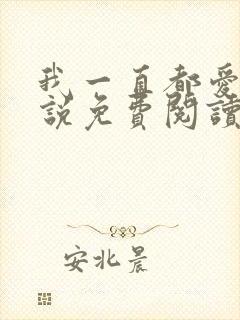 我一直都愛
說免費閱讀
安北晨